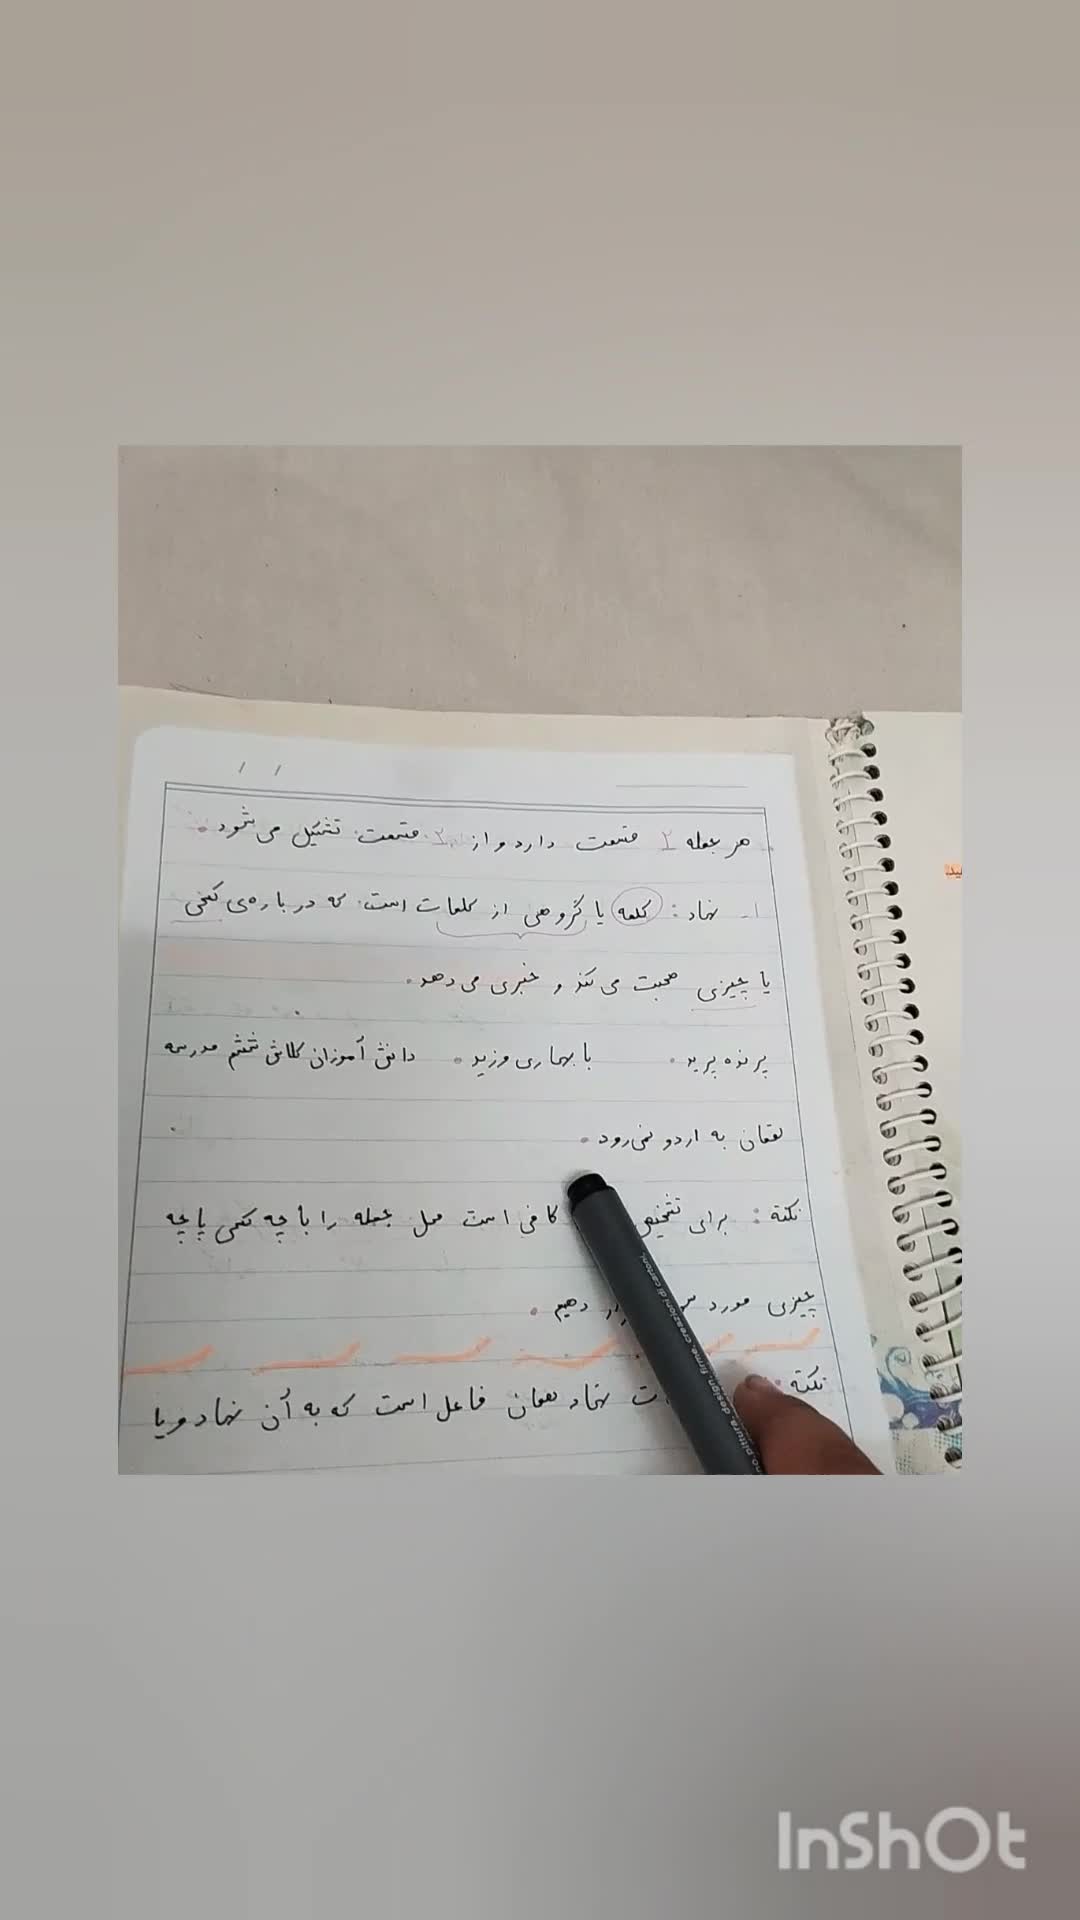 هر جمله ۲ قسمت دارد و از ۲ قسمت تشکیل می شود.
۱- نهاد: کلمه یا گروهی از کلمات است که درباره‌ی کسی
یا چیزی صحبت می کند و خبری می دهد.
پرنده پرید. با بهاری وزید. دانش آموزان کلاس ششم مدرسه
لقمان به اردو نمی رود.
نکته: برای تشخیص کافی است جمله را با چه کسی یا چه
چیزی مورد دهیم.
نکته: نهاد همان فاعل است که به آن نهاد و یا
InShOt